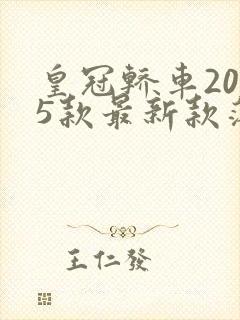 皇冠轿车20
5款最新款
王仁發